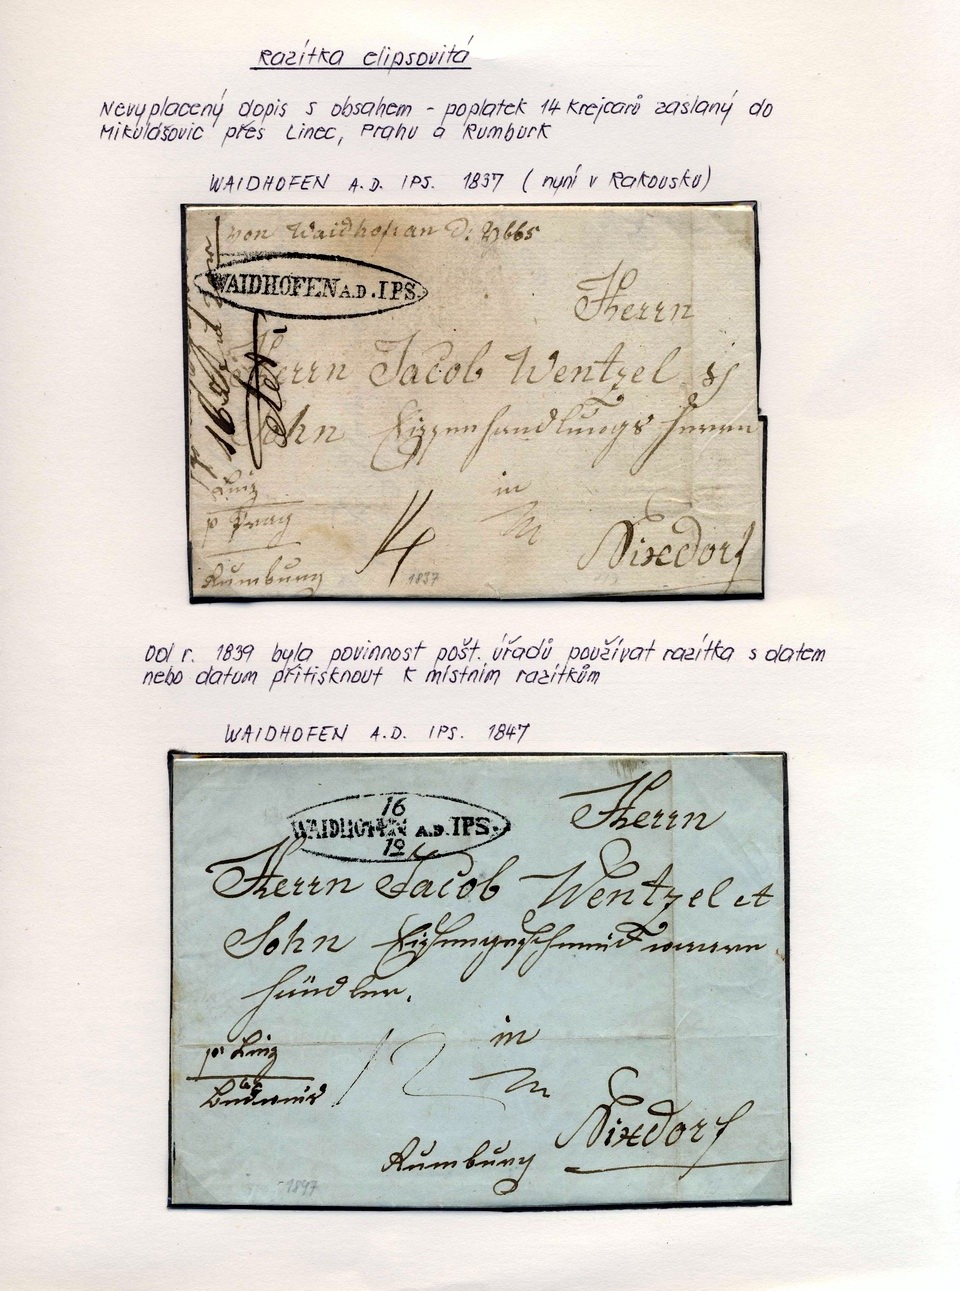 Razítka elipsovitá
Nevyplacený dopis s obsahem - poplatek 14 krejcarů zaslaný do
Mikulášovic přes Linec, Prahu a Rumburk
WAIDHOFEN A.D. IPS. 1837 (nyní v Rakousku)
von Waidhofen d: Ybbs
WAIDHOFEN A.D. IPS.
Herrn
Herrn Jacob Wentzel
Sohn Eissenhandlungs Herrn
in
Linz
p Prag
14
Nixdorf
Rumburg
1837
Od r. 1839 byla povinnost pošt. úřadů používat razítka s datem
nebo datum přitisknout k místním razítkům
WAIDHOFEN A.D. IPS. 1847
16
WAIDHOFEN A.D. IPS.
12
Herrn
Herrn Jacob Wentzel et
Sohn
händler.
in
pr Linz
Budweis
12
Nixdorf
Rumburg
1847